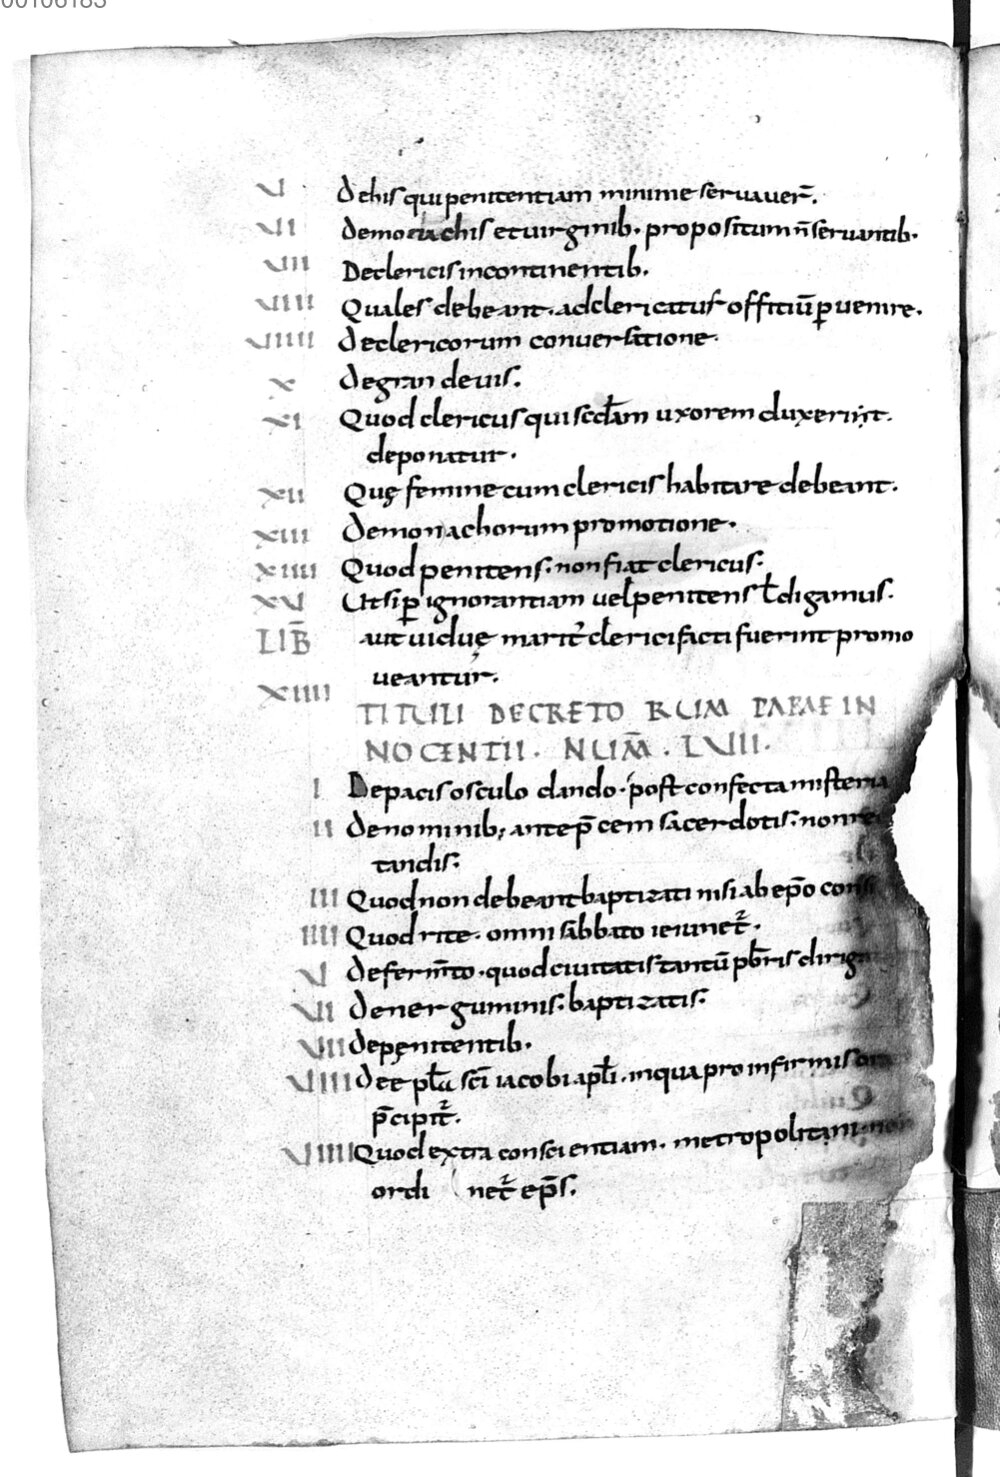 00106183
VI De his qui penitentiam minime servaver̅.
VII de monachis et virginib. propositum n̅ servantib.
VIII De clericis incontinentib.
VIIII Quales debeant. ad clericatus offitiu̅ p̲venire.
VIIIII de clericorum conversatione.
X de grandevis.
XI Quod clericus qui scd̅am uxorem duxerint.
deponatur.
XII Quę femine cum clericis habitare debeant.
XIII de monachorum promotione.
XIIII Quod penitens. non fiat clericus.
XV Ut si p̲ ignorantiam vel penitens ł digamus.
LIB̅ aut viduę marit̅ clerici facti fuerint promo
veantur.
XIIII
TITULI DECRETORUM PAPAE IN
NOCENTII. NUM̅. LVIII.
I De pacis osculo dando. post confecta misteria
II de nominib; ante p̅cem sacerdotis. non
tandis.
III Quod non debeant baptizati nisi ab ep̅o
IIII Quod rite. omni sabbato ieiunet̅.
V de ferm̅to. quod civitatis tantu̅ pb̅ris
VI de nerguminis. baptizatis.
VII de pęnitentib.
VIII de epl̅a sc̅i iacobi apl̅i. in qua pro infirmis
p̅cipit̅.
VIIII Quod extra conscientiam. metropolitani. non
ordi net̅ ep̅s.